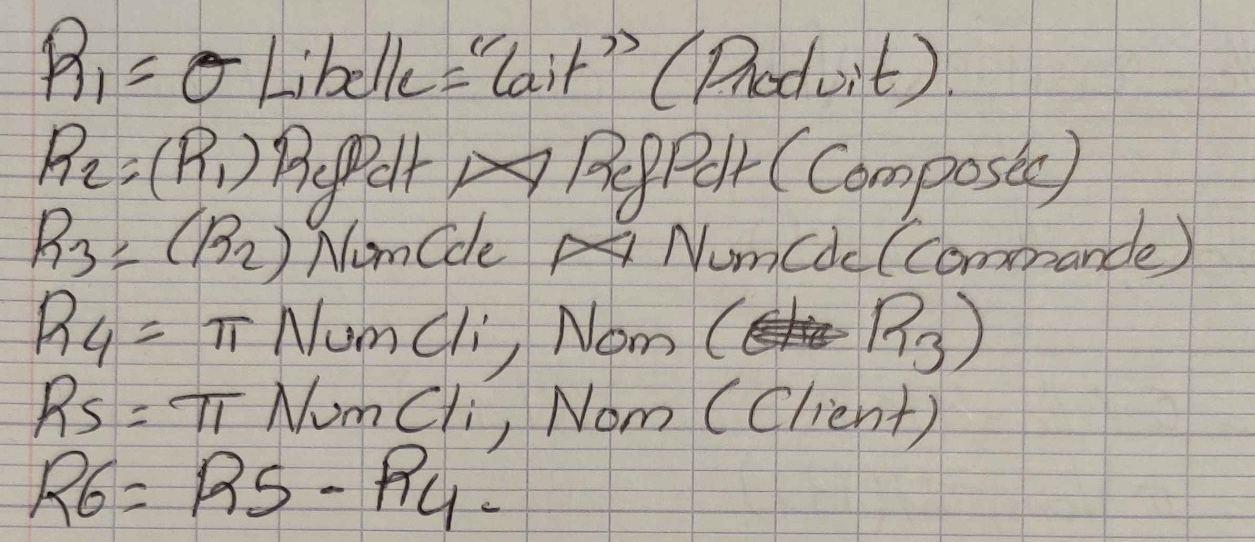 R1 = σ Libelle = "lait" (Produit).
R2 = (R1) RefPdt ⋈ RefPdt (Composée)
R3 = (R2) NumCde ⋈ NumCde (Commande)
R4 = π NumCli, Nom (R3)
R5 = π NumCli, Nom (Client)
R6 = R5 - R4.